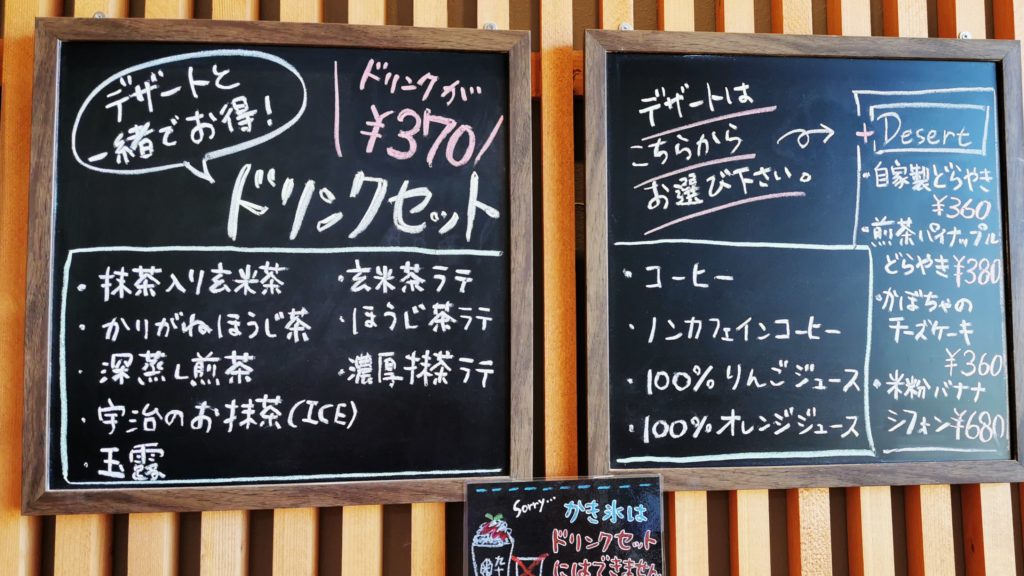 デザートと
一緒でお得!
ドリンクが
¥370
ドリンクセット
・抹茶入り玄米茶
・かりがねほうじ茶
・深蒸し煎茶
・宇治のお抹茶(ICE)
・玉露
・玄米茶ラテ
・ほうじ茶ラテ
・濃厚抹茶ラテ
デザートは
こちらから
お選び下さい。
・コーヒー
・ノンカフェインコーヒー
・100%りんごジュース
・100%オレンジジュース
+ Desert
・自家製どらやき
¥360
・煎茶パイナップル
どらやき¥380
・かぼちゃの
チーズケーキ
¥360
・米粉バナナ
シフォン¥680
Sorry...
かき氷は
ドリンクセット
にはできません